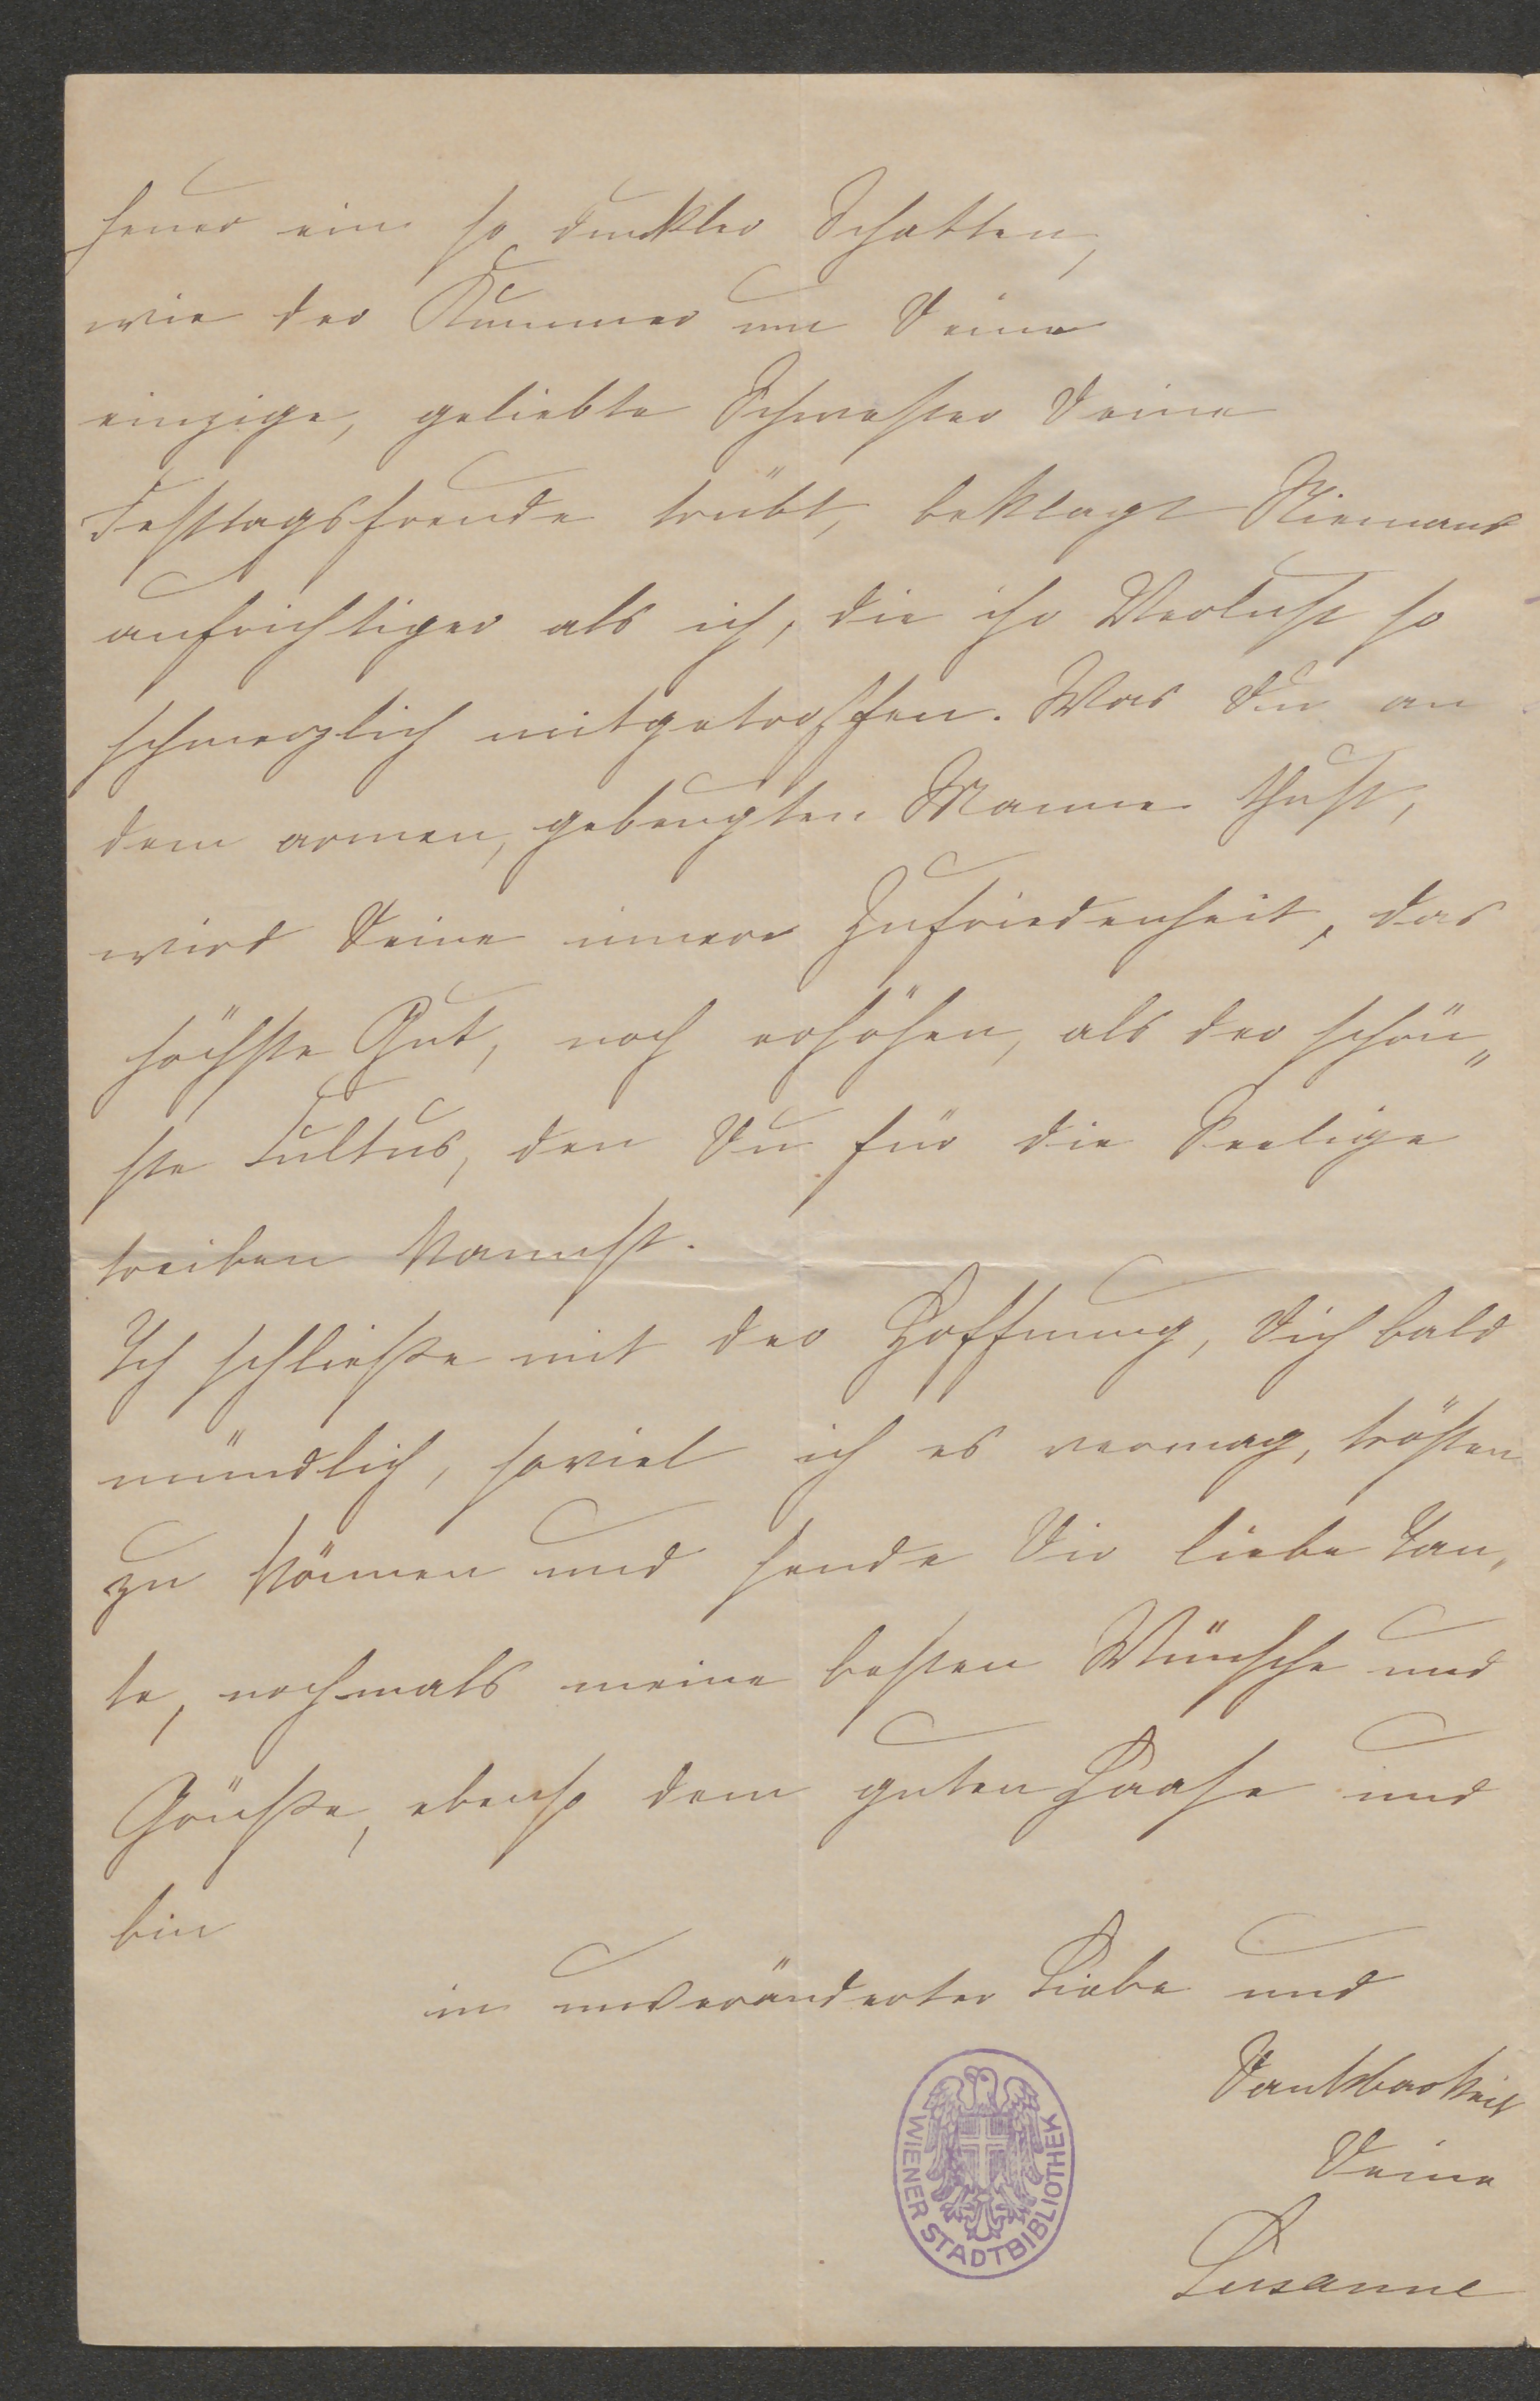 heuer ein so dunkler Schatten,
wie der Kummer um Deine
einzige, geliebte Schwester Deine
Festtagsfreude trübt, beklagt Niemand
aufrichtiger als ich, die ihr Verlust so
schmerzlich mitgetroffen. Was Du an
dem armen, gebeugten Manne thust,
wird Deine innere Zufriedenheit, das
höchste Gut, noch erhöhen, als der schön„
ste Cultus, den Du für die Seelige
treiben kannst.
Ich schließe mit der Hoffnung, Dich bald
mündlich, soviel ich es vermag, trösten
zu können und sende Dir liebe Tan„
te, nochmals meine besten Wünsche und
Grüße, ebenso dem guten Haase und
bin
in unveränderter Liebe und
Dankbarkeit
Deine
Susanne
WIENER STADTBIBLIOTHEK